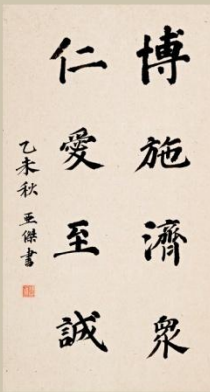 博施濟衆
仁愛至誠
乙未秋 亞傑書